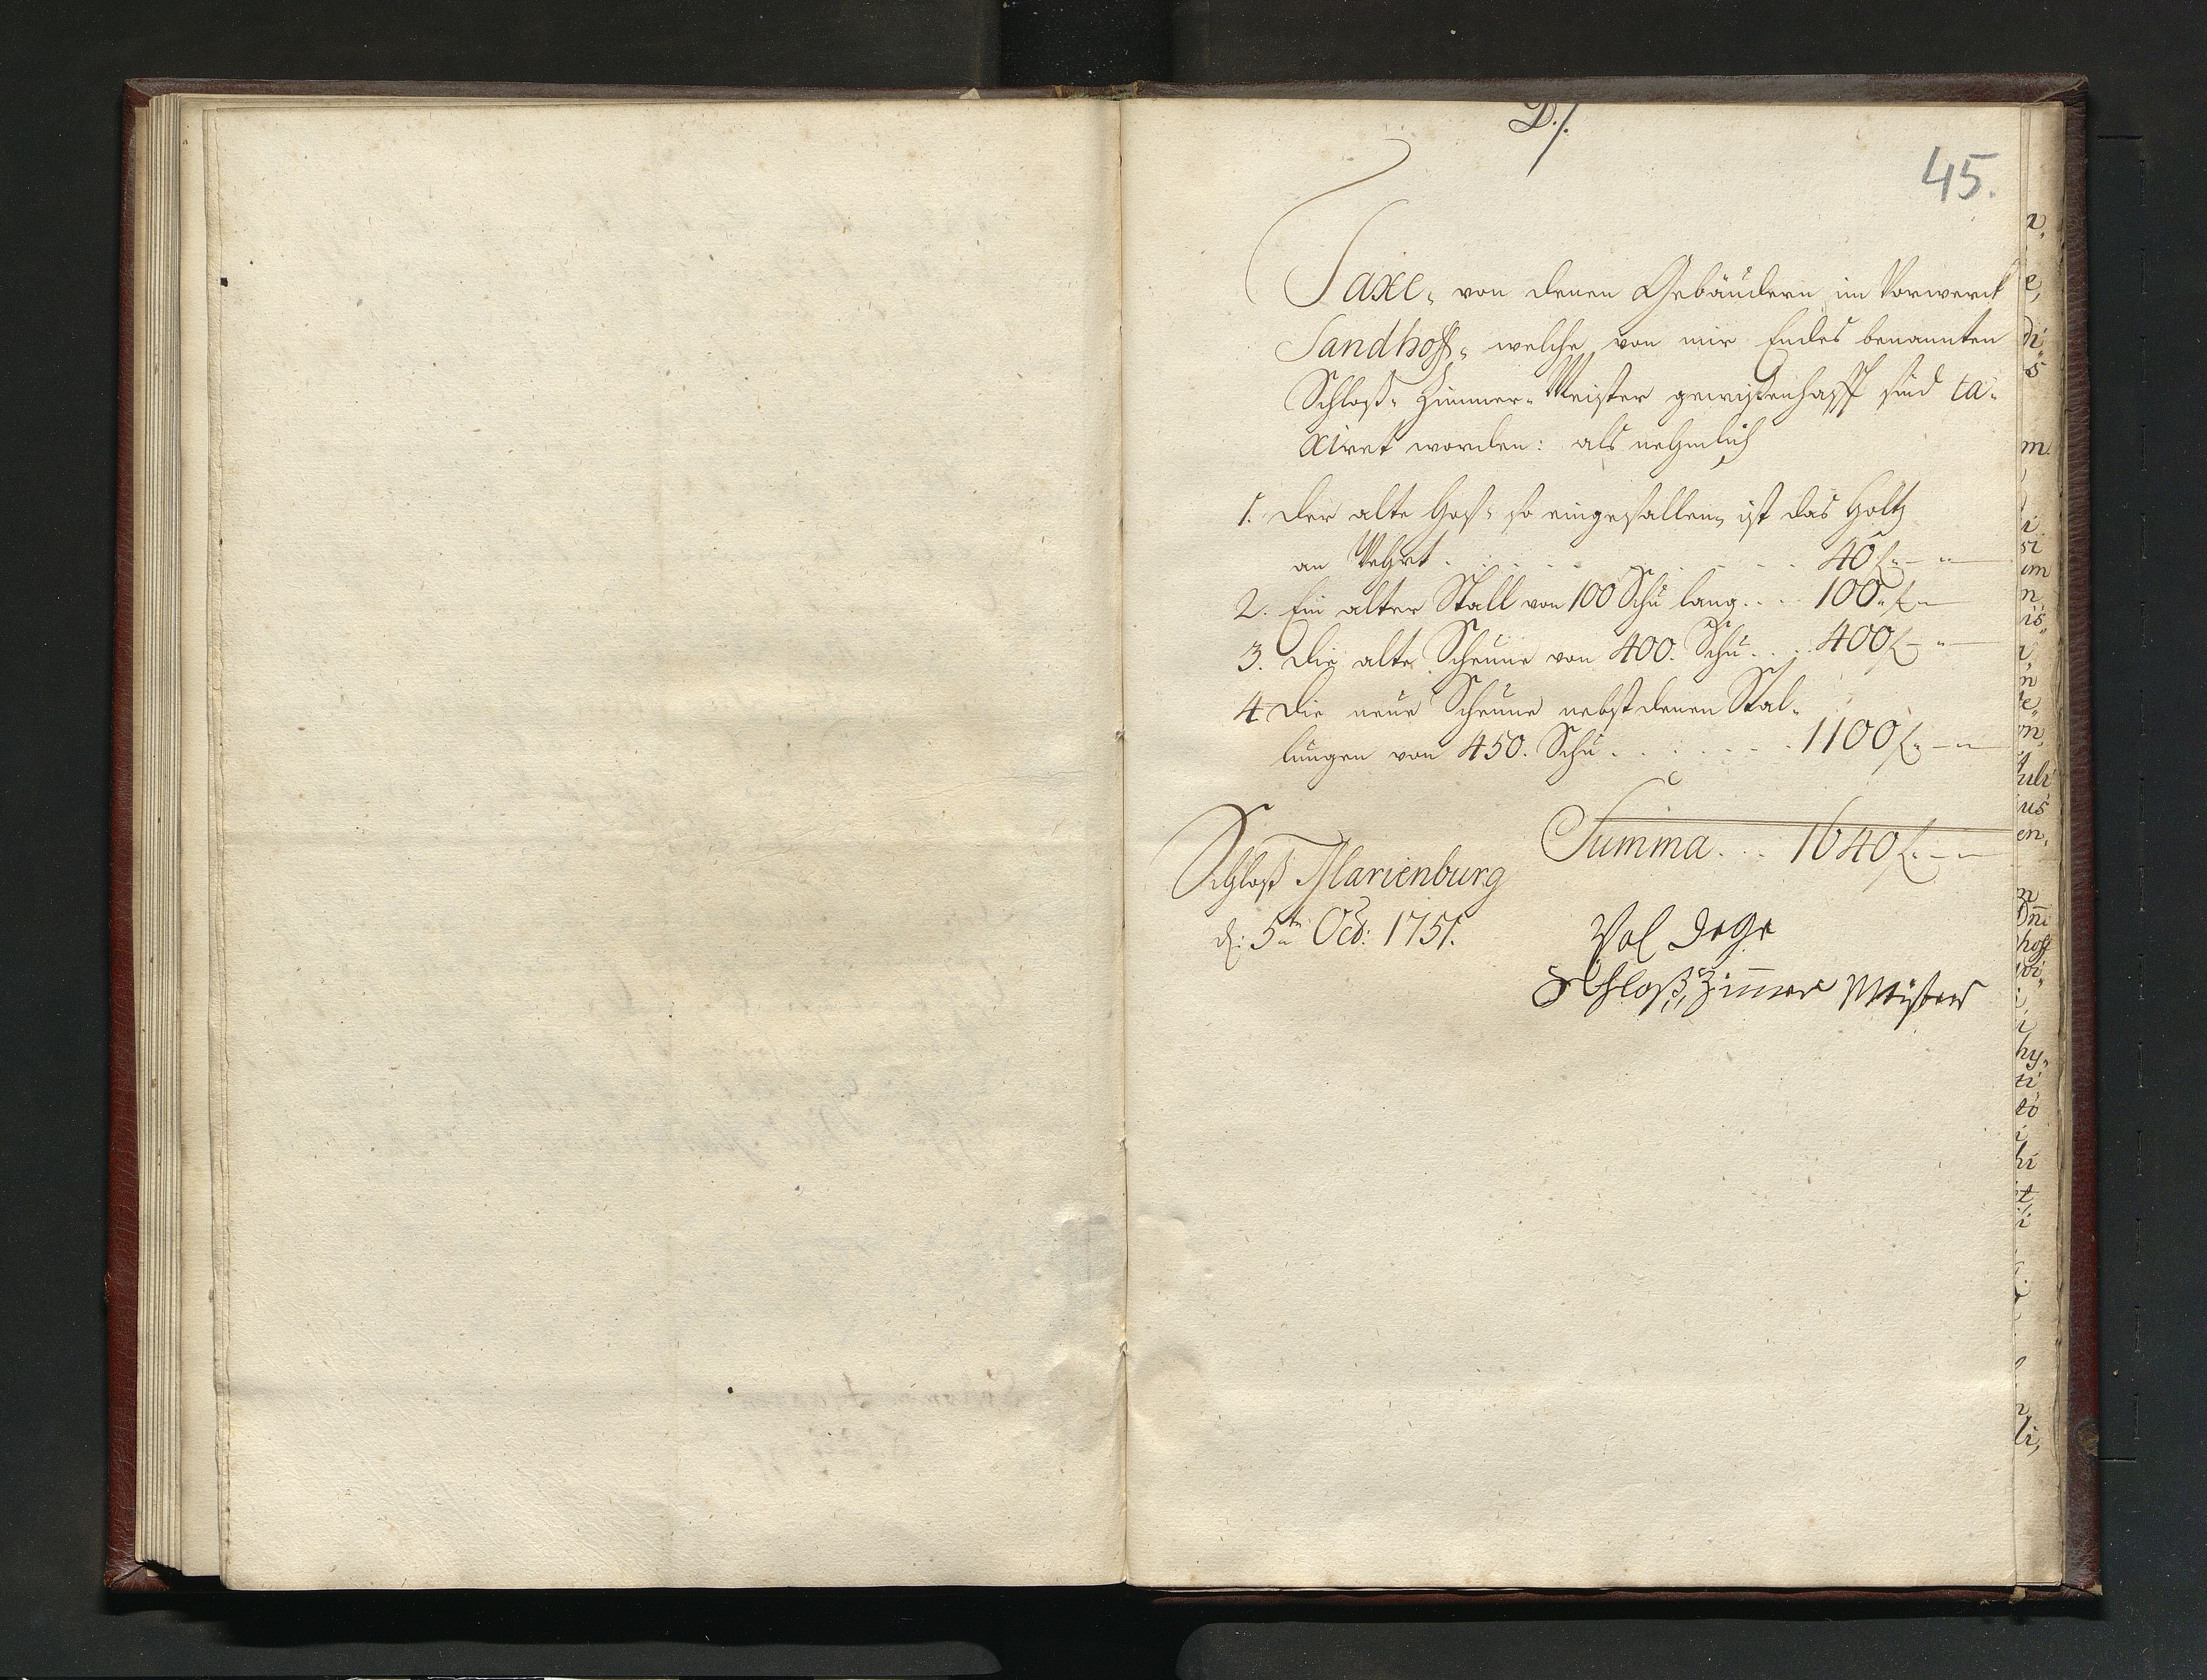 D./.
45.
Taxe, von denen Gebäudern im Vorwerck
Sandhoff, welche von mir Endes benannten
Schloß-Zimmer-Meister gewißenhafft sind ta-
xiret worden: als nehmlich
1. Der alte Hoff so eingefallen, ist das Holtz
an Wehrt . . . . . . . . 40 f. - " -
2. Ein alter Stall von 100 Schu lang . . . 100 f. -
3. Die alte Scheune von 400. Schu . . . 400 f. - " -
4. Die neue Scheune nebst denen Stal-
lungen von 450. Schu . . . . . . . 1100 f. - " -
Summa . . . 1640 f. - " -
Schloß Marienburg
d: 5ten Octb: 1751.
Dege
Schloß, Zimmer Meister